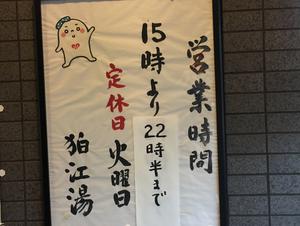 営業時間
15時より
22時半まで
定休日 火曜日
狛江湯